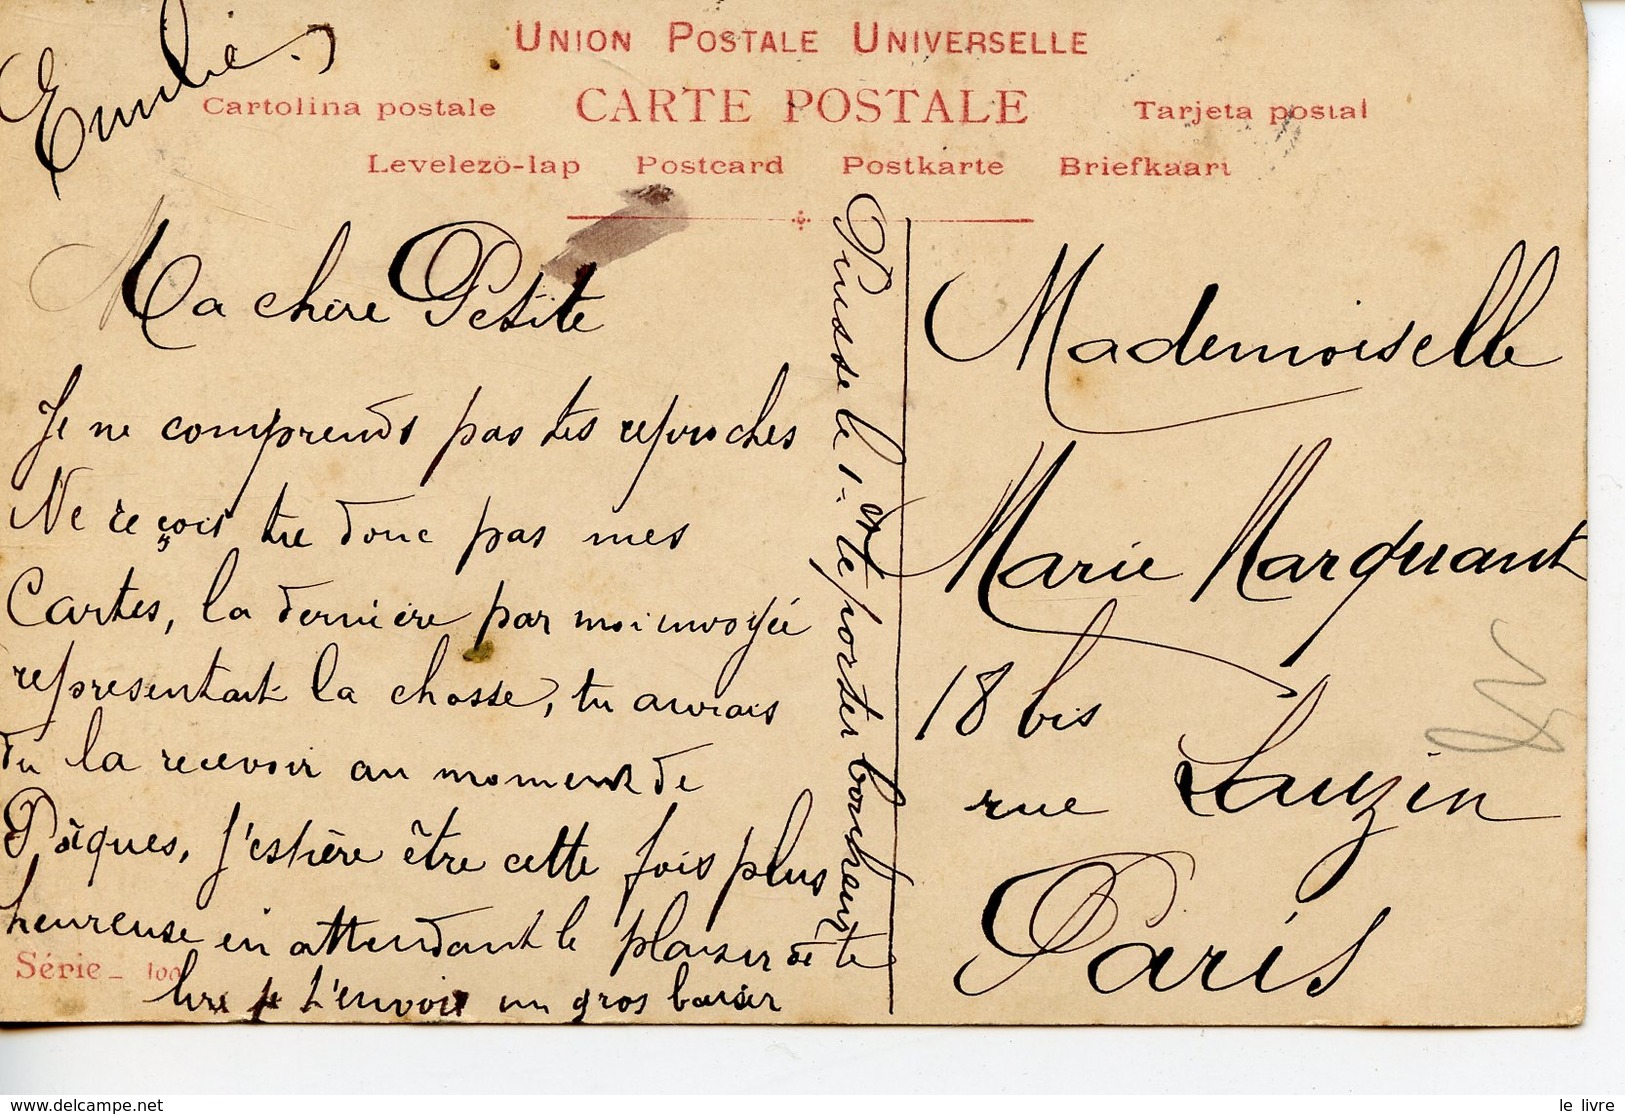 Emilie
UNION POSTALE UNIVERSELLE
Cartolina postale CARTE POSTALE Tarjeta postal
Levelezö-lap Postcard Postkarte Briefkaart
Ma chère Petite
Je ne comprends pas tes reproches
Ne reçois tu donc pas mes
Cartes, la dernière par moi envoyée
représentait la chosse, tu aurais
du la recevoir au moment de
Pâques, j'espère être cette fois plus
heureuse en attendant le plaisir de te
lire je t'envoie un gros baiser
Série - 100
Puisse le 1er te porter bonheur
Mademoiselle
Marie Marquant
18 bis
rue Lauzin
Paris
www.delcampe.net
le livre